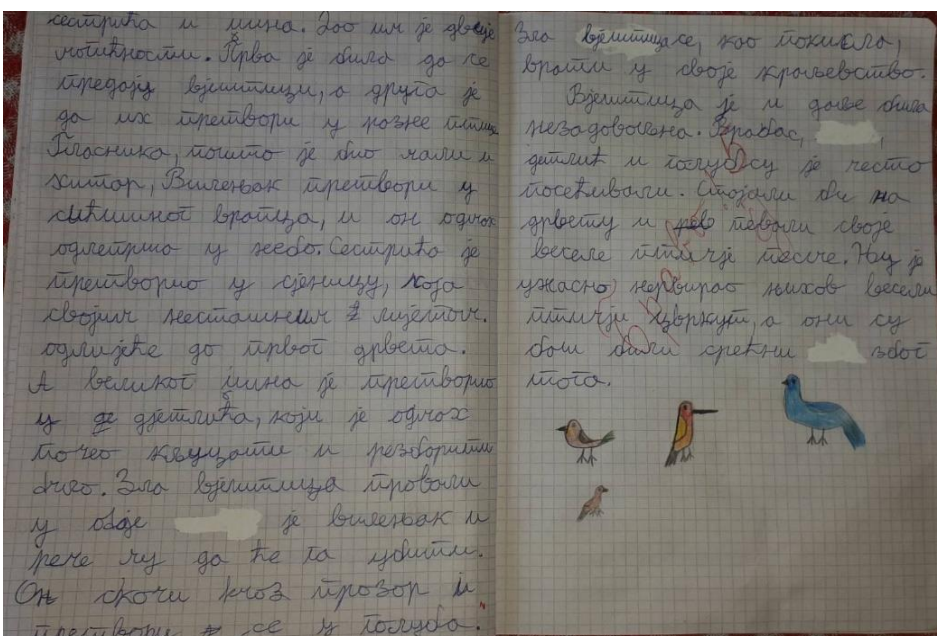 сестрића и џина. Зао им је двије
могућности. Прва је била да се
предају вјештици, а друга је
да их претвори у разне птице
Гласника, пошто је био мали и
хитар, Виленьак претвори у
сићишног врапца, и он одмах
одлепрша у небо. Сестрића је
претворио у сјеницу, која
својим несташним лијетом.
одлијеће до првог дрвета.
А великог џина је претворио
у дјетлића, који је одмах
почео кљуцати и резбарити
Зла вјештица провали
у обје је виленьак и
рече му да ће га убити.
Он скочи кроз прозор и
претвори се у голуба.
Зла вјештица се, као покисла,
врати у своје краљевство.
Вјештица је и даље била
незадовољна. Врабац,
детлић и голуб су је често
посећивали. Стојали би на
дрвету и певали своје
веселе птичје песме. Њу је
ужасно нервирао њихов весели
птичји цвркут, а они су
баш били срећни због
тога.